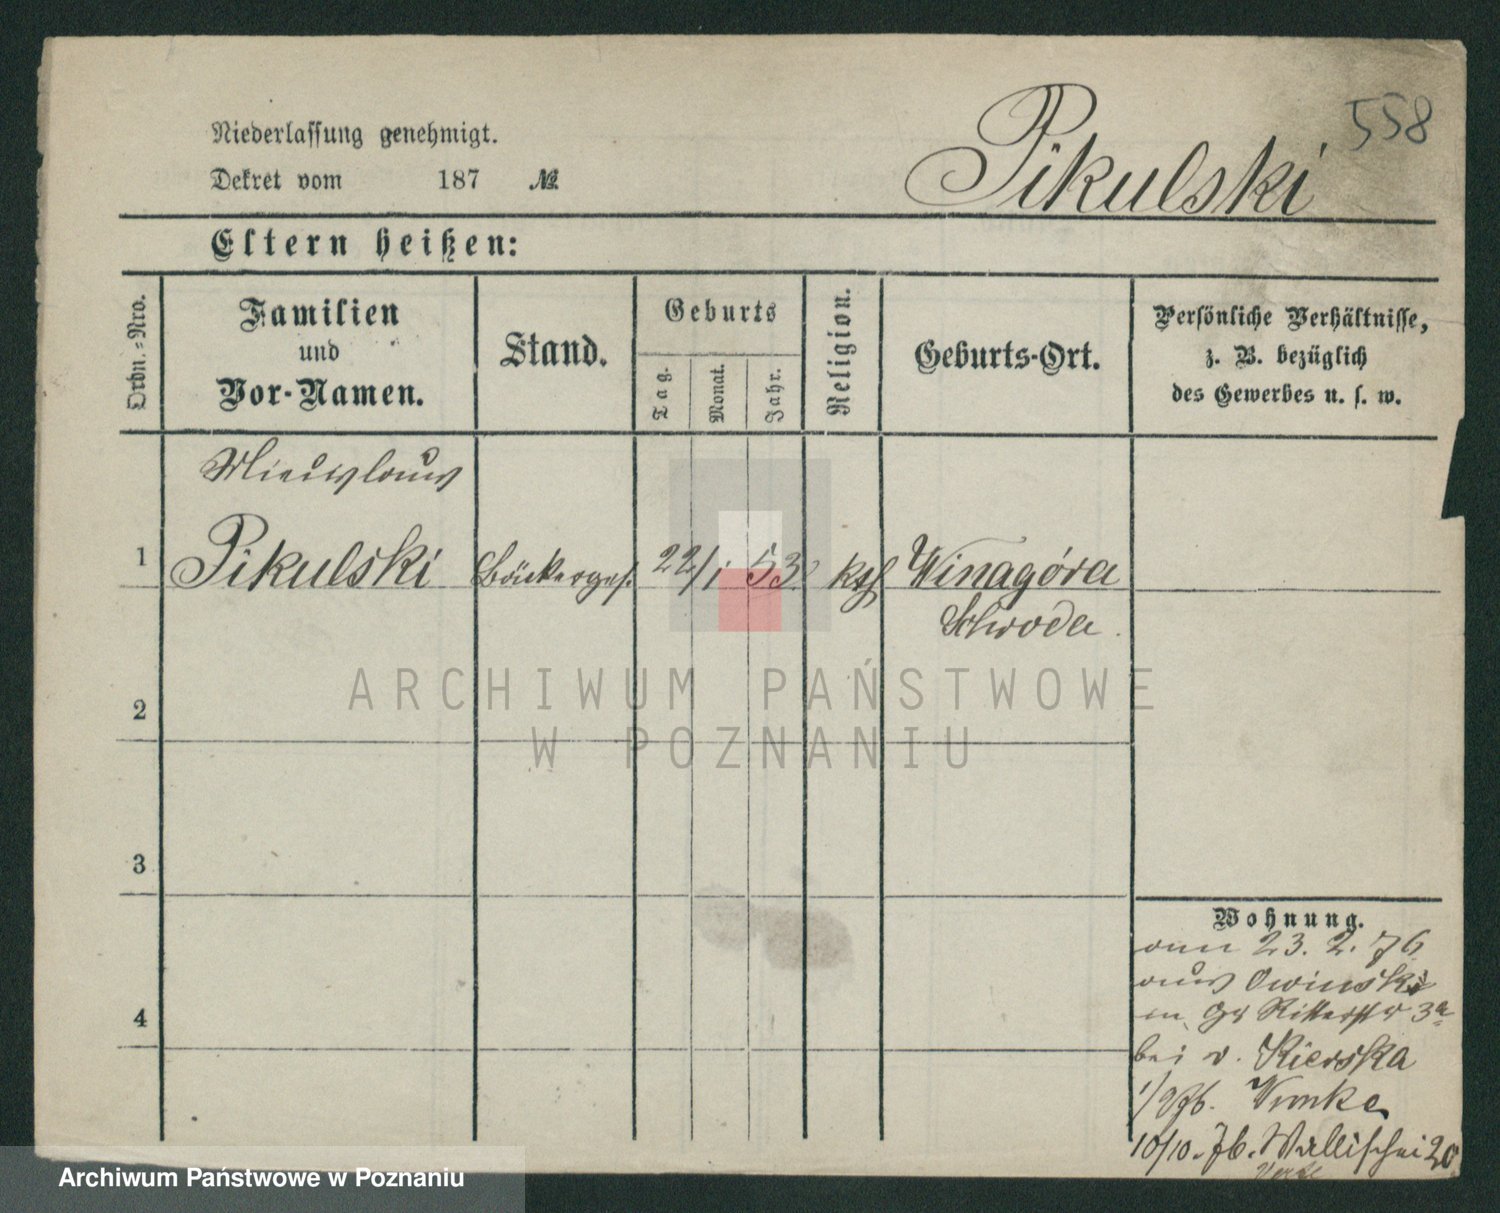 558
Niederlassung genehmigt.
Dekret vom 187 №
Pikulski
Eltern heißen:
Ordn.-Nro.
Familien
und
Vor-Namen.
Stand.
Geburts
Tag.
Monat.
Jahr.
Religion.
Geburts-Ort.
Persönliche Verhältnisse,
z. B. bezüglich
des Gewerbes u. s. w.
1
Pikulski Bäckerges. 22/1 53 kth Winagóra
Schroda.
2
3
4
Wohnung.
am 23. 2. 76
aus Owinsk
in Gr Ritterstr 3a
bei v. Kierska
10/10. 76. Wallischei 20
ARCHIWUM PAŃSTWOWE
W POZNANIU
Archiwum Państwowe w Poznaniu